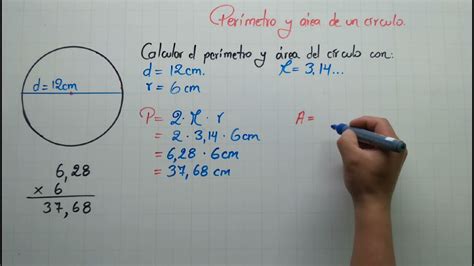 Perímetro y área de un círculo
Calcular el perímetro y área del círculo con:
d = 12cm. π = 3,14...
r = 6cm
d = 12cm
P = 2 · π · r
= 2 · 3,14 · 6cm
= 6,28 · 6cm
= 37,68 cm
A =
6,28
× 6
37,68